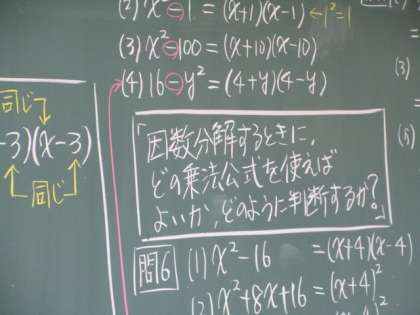 同じ
-3)(x-3)
同じ
(2) x²-1 = (x+1)(x-1) ←1²=1
(3) x²-100 = (x+10)(x-10)
(4) 16-y² = (4+y)(4-y)
「因数分解するときに、
どの乗法公式を使えば
よいか、どのように判断するか?」
問6 (1) x²-16 = (x+4)(x-4)
(2) x²+8x+16 = (x+4)²
(3)